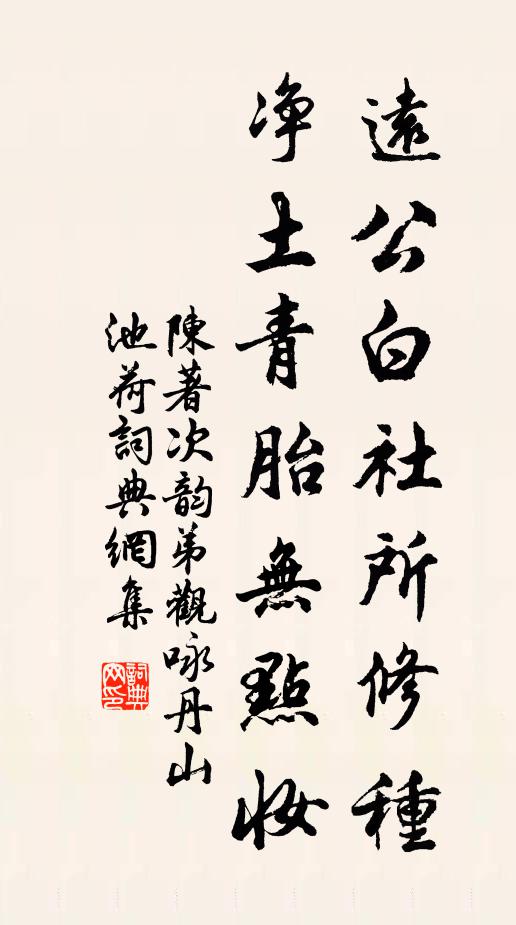 遠公白社所修種
净土青胎無點妝
陳著次韵弟觀咏丹山
池荷詞典網集
詞典网印